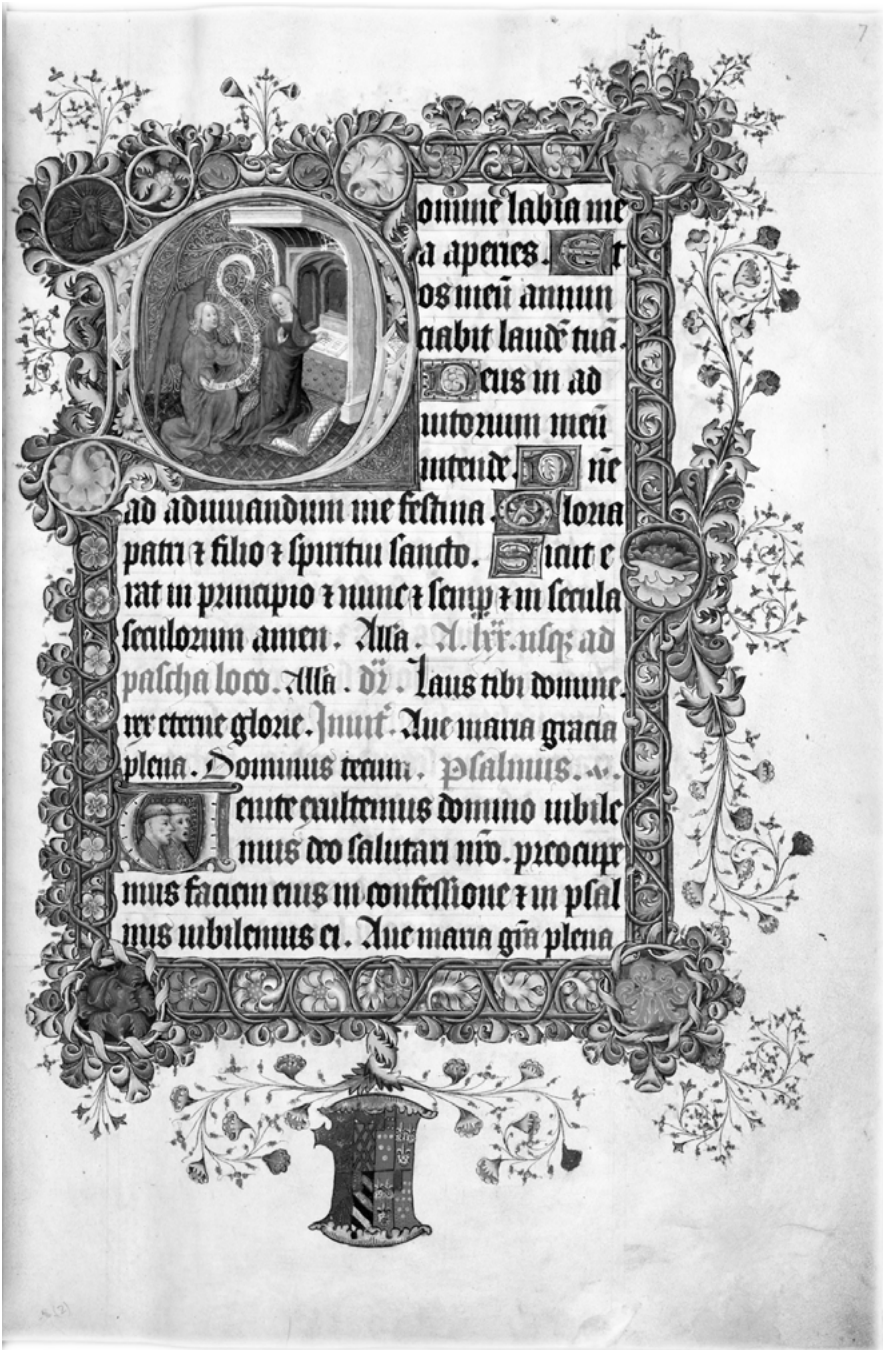 7
Domine labia me
a aperies. Et
os meū annun
ciabit laudē tuā.
Deus in ad
iutorium meū
intende. Dñe
ad adiuuandum me festina. Gloria
patri ⁊ filio ⁊ spiritui sancto. Sicut e
rat in principio ⁊ nunc ⁊ semp̲ ⁊ in secula
seculorum amen. Alla. A. lxx. usqꝫ ad
pascha loco. Alla. dr̄. Laus tibi domine.
rex eterne glorie. Inuit̄. Aue maria gracia
plena. Dominus tecum. Psalmus.
Uenite exultemus domino iubile
mus deo salutari nr̄o. preocupe
mus faciem eius in confessione ⁊ in psal
mis iubilemus ei. Aue maria gr̄a plena